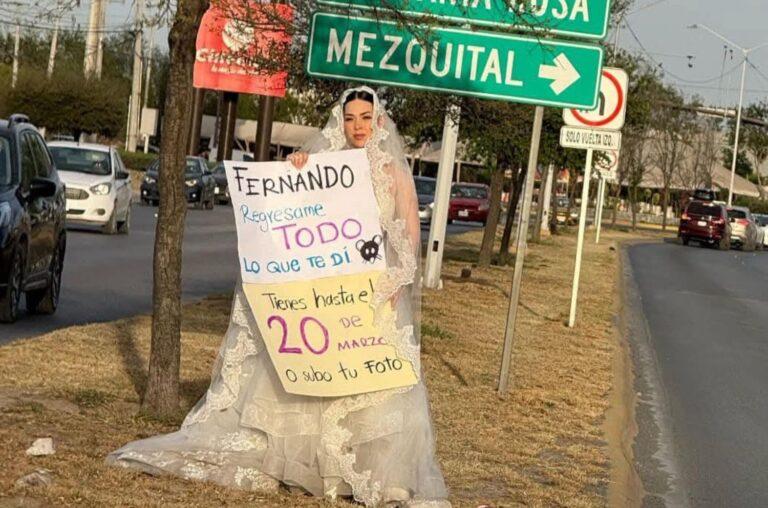 MEZQUITAL
SOLO VUELTA IZQ
FERNANDO
Regresame
TODO
LO QUE TE DÍ
Tienes hasta el
20 DE
MARZO
O subo tu FOTO